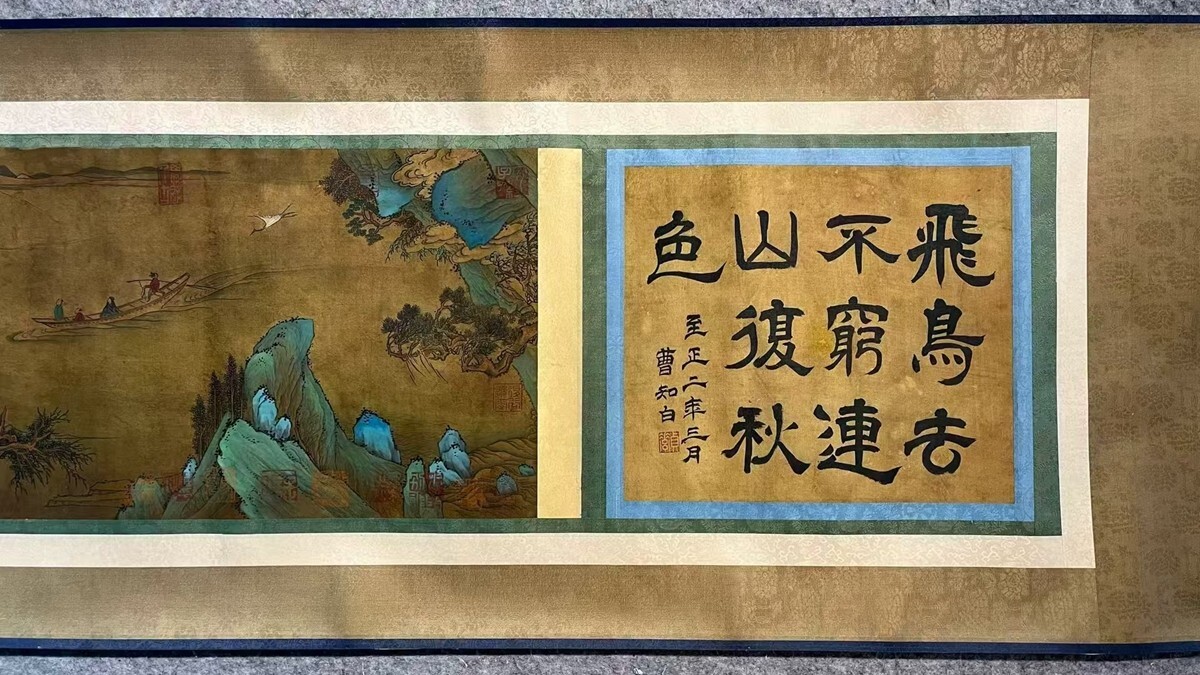 飛鳥去
不窮連
山復秋
色
至正二年三月
曹知白